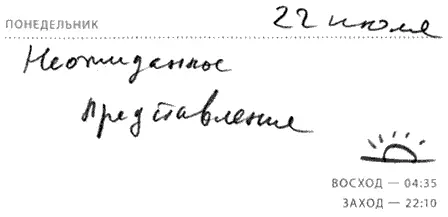 ПОНЕДЕЛЬНИК
22 июля
Неожиданное
представление
ВОСХОД — 04:35
ЗАХОД — 22:10